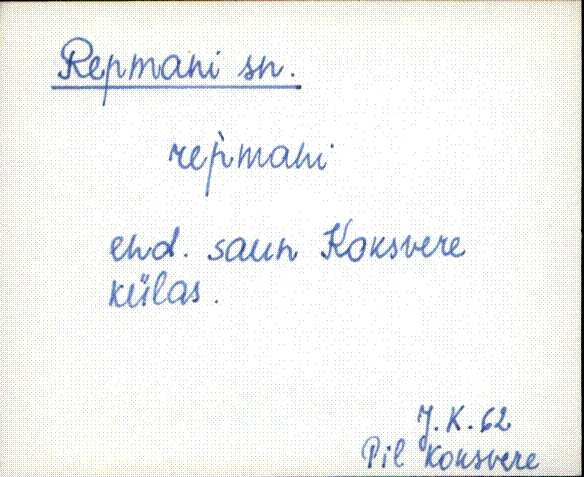 Repmani sn.
rep̀mani
end. saun Koksvere
külas.
J. K. 62
Pil Koksvere